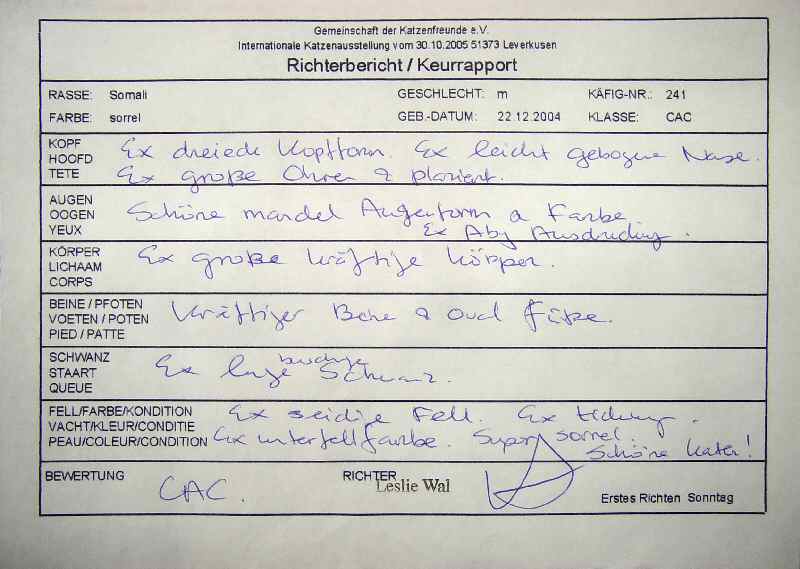 Gemeinschaft der Katzenfreunde e.V.
Internationale Katzenausstellung vom 30.10.2005 51373 Leverkusen
Richterbericht / Keurrapport
RASSE: Somali GESCHLECHT: m KÄFIG-NR.: 241
FARBE: sorrel GEB.-DATUM: 22.12.2004 KLASSE: CAC
KOPF
HOOFD
TETE
Ex dreieck Kopfform. Ex leicht gebogene Nase.
Ex große Ohren & plaziert.
AUGEN
OOGEN
YEUX
Schöne mandel Augenform & Farbe
Ex Aby
KÖRPER
LICHAAM
CORPS
Ex große kräftige Körper.
BEINE / PFOTEN
VOETEN / POTEN
PIED / PATTE
Kräftiger Beine & Oval Füße.
SCHWANZ
STAART
QUEUE
Ex lange buschige Schwanz.
FELL/FARBE/KONDITION
VACHT/KLEUR/CONDITIE
PEAU/COLEUR/CONDITION
Ex seidige Fell. Ex
Ex unterfellfarbe. Super sorrel.
Schöne Kater!
BEWERTUNG CAC. RICHTER Leslie Wal
Erstes Richten Sonntag